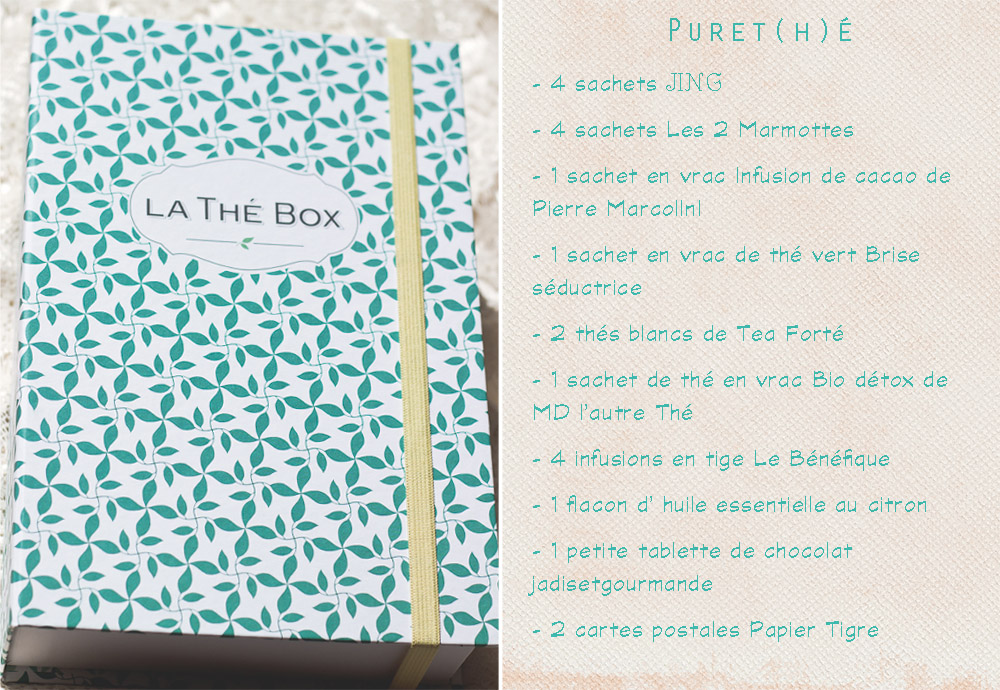 LA THÉ BOX
PURET(H)É
- 4 sachets JING
- 4 sachets Les 2 Marmottes
- 1 sachet en vrac Infusion de cacao de
Pierre Marcolini
- 1 sachet en vrac de thé vert Brise
séductrice
- 2 thés blancs de Tea Forté
- 1 sachet de thé en vrac Bio détox de
MD l'autre Thé
- 4 infusions en tige Le Bénéfique
- 1 flacon d' huile essentielle au citron
- 1 petite tablette de chocolat
jadisetgourmande
- 2 cartes postales Papier Tigre